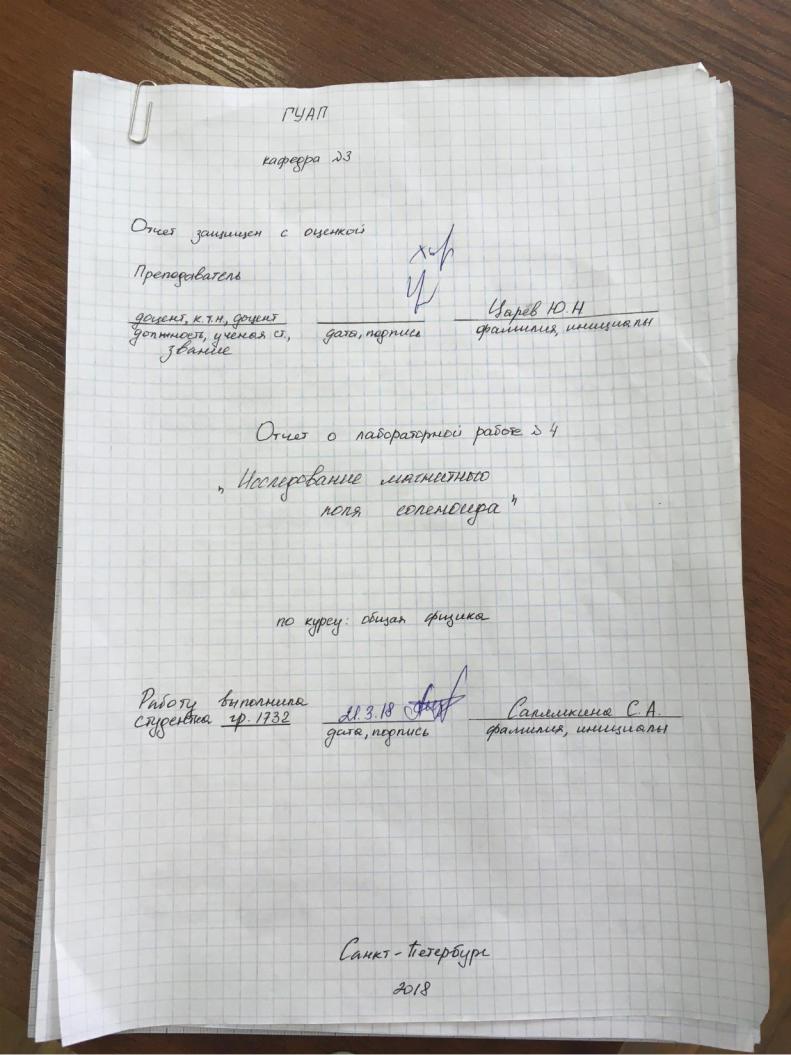 ГУАП
кафедра №3
Отчет защищен с оценкой
хор
Преподаватель
доцент, к.т.н, доцент
Царев Ю.Н
должность, ученая ст.,
звание
дата, подпись
фамилия, инициалы
Отчет о лабораторной работе №4
„Исследование магнитного
поля соленоида"
по курсу: общая физика
Работу выполнила
студентка гр. 1732
21.3.18
Салямкина С.А.
дата, подпись
фамилия, инициалы
Санкт-Петербург
2018